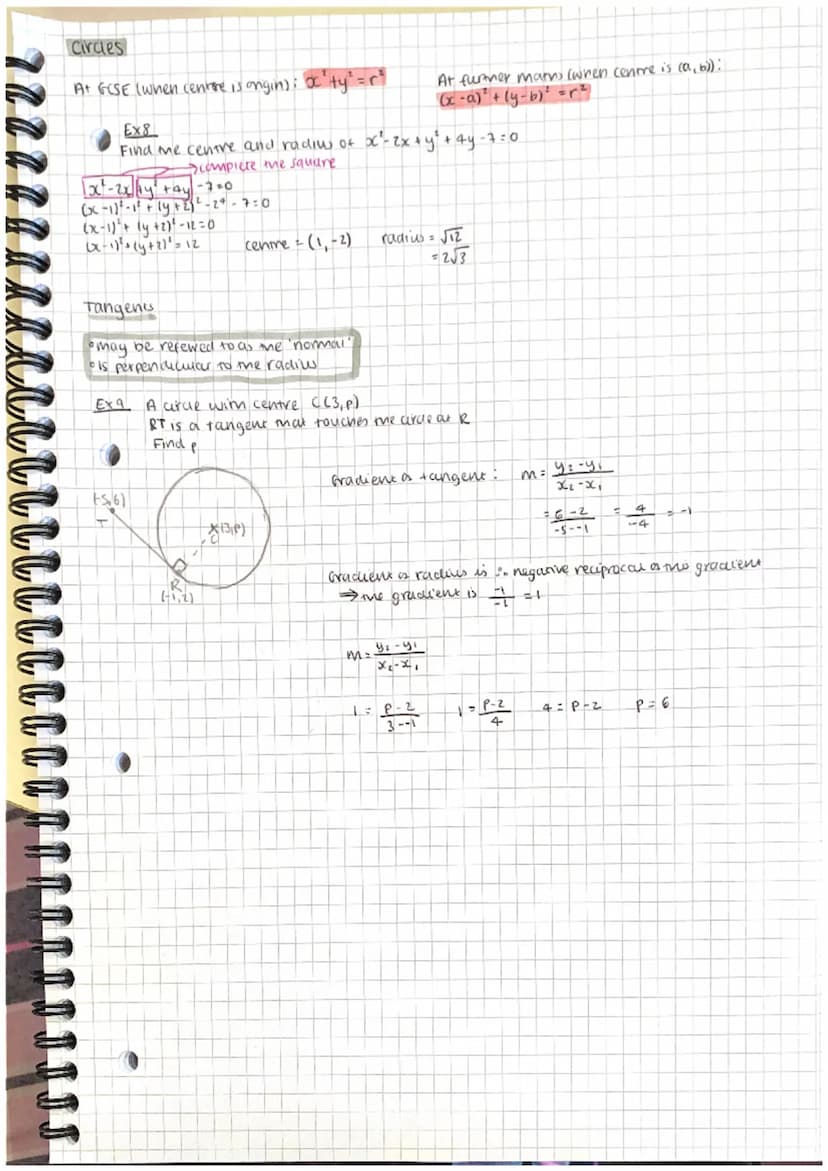 Circles
At GCSE (when centre is origin): x² + y² = r²
At further maths (when centre is (a, b)):
(x - a)² + (y - b)² = r²
Ex 8
Find the centre and radius of x² - 2x + y² + 4y - 7 = 0
→ complete the square
x² - 2x + y² + 4y - 7 = 0
(x - 1)² - 1² + (y + 2)² - 2² - 7 = 0
(x - 1)² + (y + 2)² - 12 = 0
(x - 1)² + (y + 2)² = 12 centre = (1, -2) radius = √12
= 2√3
Tangents
• may be referred to as the 'normal'
• is perpendicular to the radius
Ex 9 A circle with centre C(3, p)
RT is a tangent that touches the circle at R
Find p
Gradient of tangent: m = (y₂ - y₁)/(x₂ - x₁)
= (6 - 2)/(-5 - -1) = 4/-4 = -1
(-5, 6)
T
(3, p)
C
R
(-1, 2)
Gradient of radius is ∴ negative reciprocal of the gradient
⇒ the gradient is -1/-1 = 1
m = (y₂ - y₁)/(x₂ - x₁)
1 = (p - 2)/(3 - -1) 1 = (p - 2)/4 4 = p - 2 p = 6